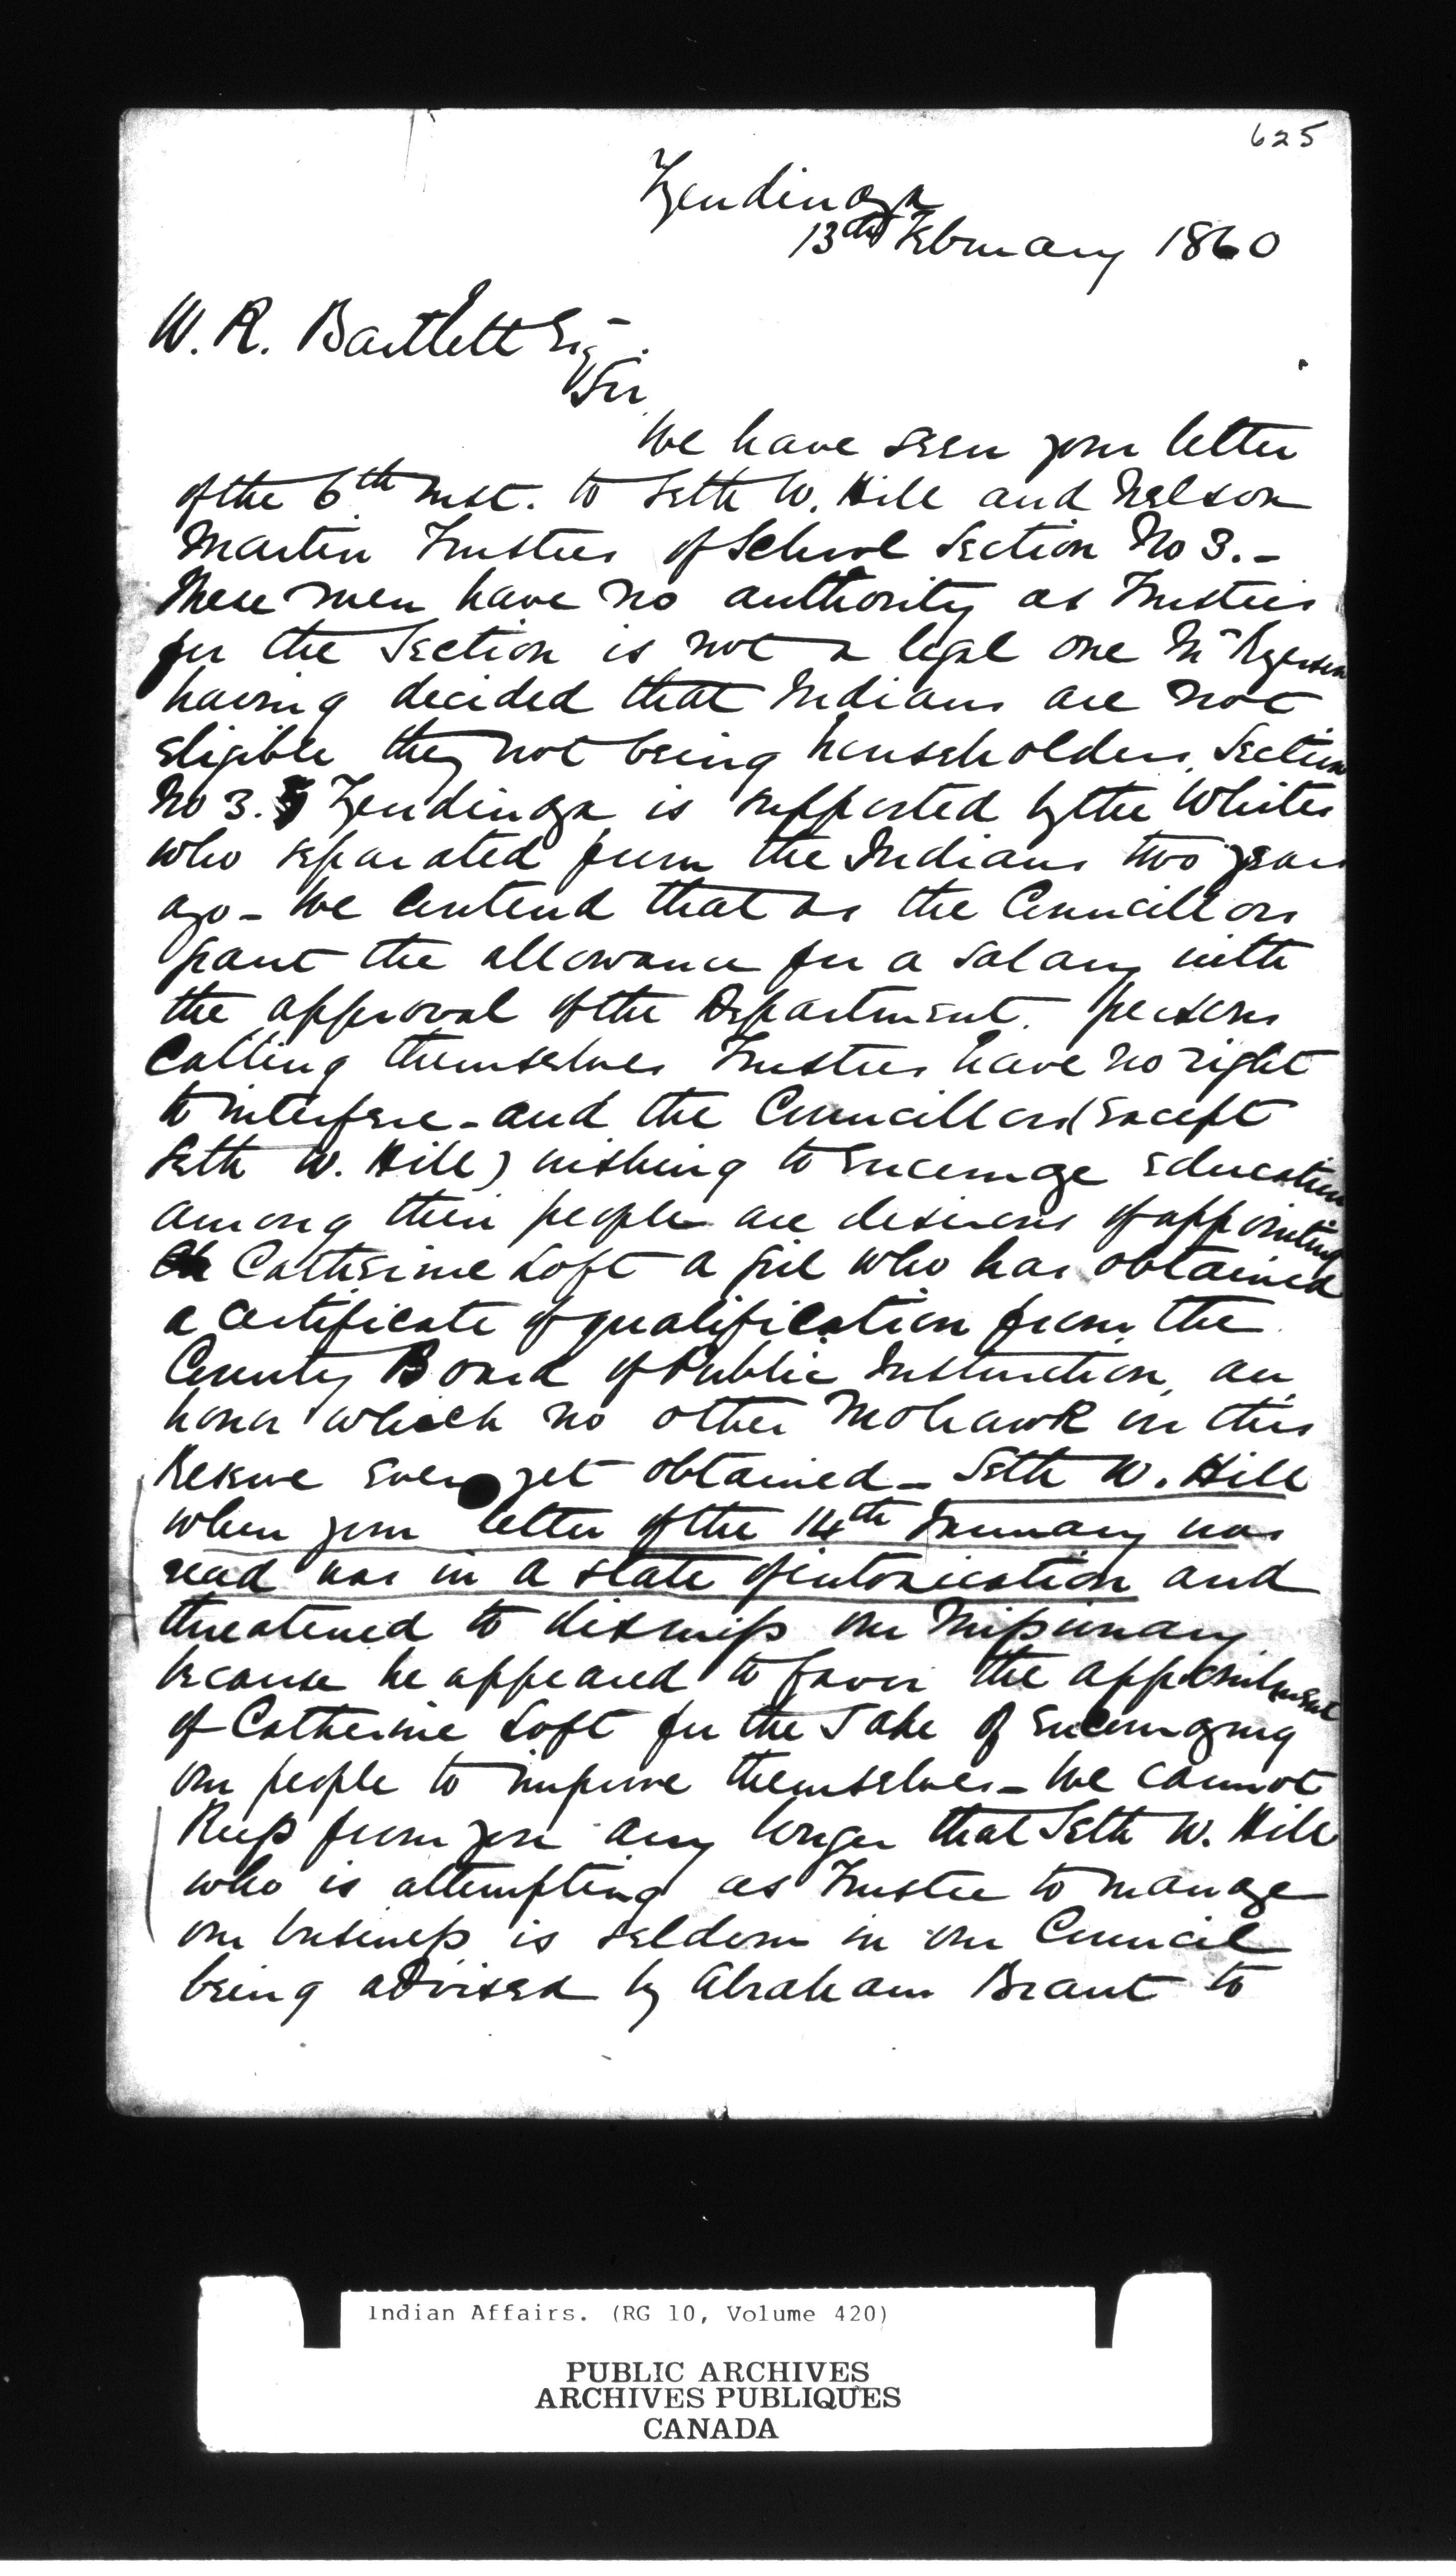 625
Tyendinaga
13th February 1860
W. R. Bartlett Esq.
Sir,
We have seen your letter
of the 6th Inst. to Seth W. Hill and Nelson
Martin Trustees of School Section No 3.-
These men have no authority as Trustees
for the Section is not a legal one Mr Ryerson
having decided that Indians are not
eligible they not being householders. Section
No 3. Tyendinaga is supported by the Whites
who separated from the Indians two years
ago - We contend that as the Councillors
grant the allowance for a salary with
the approval of the Department. persons
calling themselves Trustees have no right
to interfere - and the Councillors (except
Seth W. Hill) wishing to encourage education
among their people are desirous of appointing
Catherine Loft a girl who has obtained
a certificate of qualification from the
County Board of Public Instruction, an
honor which no other Mohawk in this
Reserve ever yet obtained - Seth W. Hill
when your letter of the 14th January was
read was in a state of intoxication and
threatened to dismiss our Missionary
because he appeared to favor the appointment
of Catherine Loft for the Sake of encouraging
our people to improve themselves - We cannot
keep from you any longer that Seth W. Hill
who is attempting as Trustee to manage
our business is seldom in our Council
being advised by Abraham Brant to
Indian Affairs. (RG 10, Volume 420)
PUBLIC ARCHIVES
ARCHIVES PUBLIQUES
CANADA